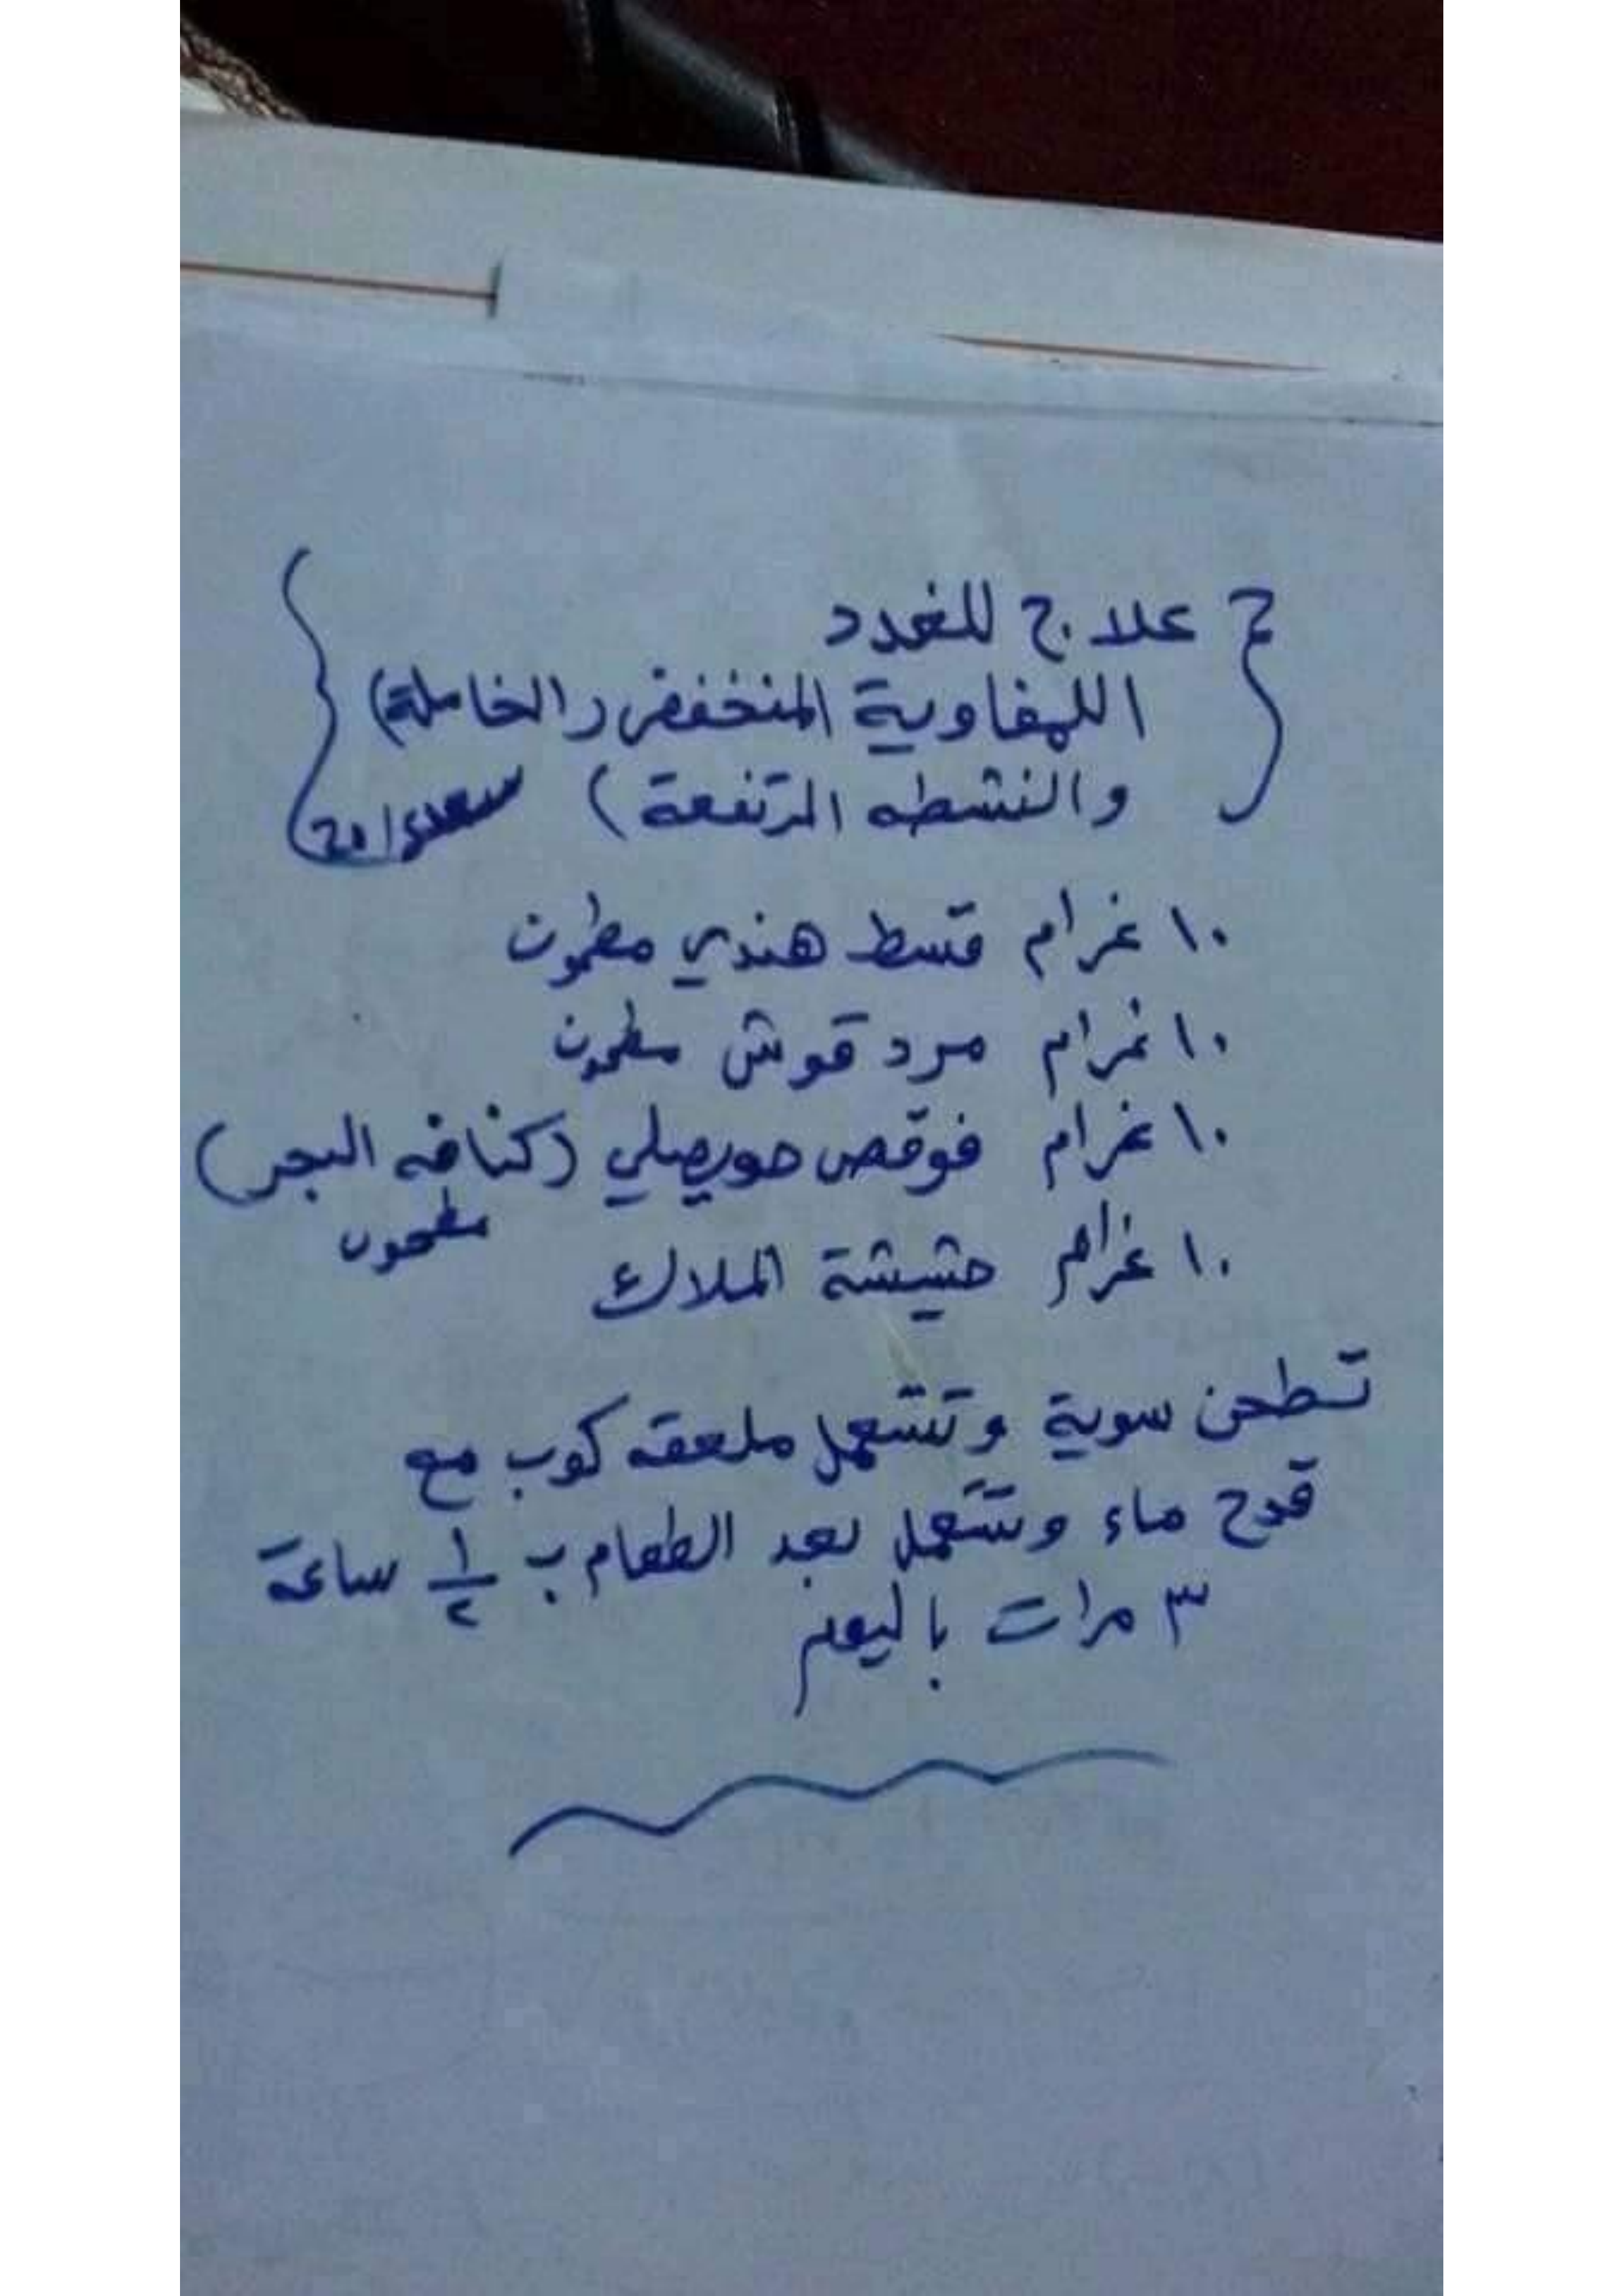 علاج للغدد
اللمفاوية المنخفض (الخاملة)
والنشطه المرتفعة)
١٠ غرام قسط هندي مطحون
١٠ غرام مرد قوش مطحون
١٠ غرام فوقص حويصلي (كنافه البحر)
مطحون
١٠ غرام حشيشة الملاك
تطحن سوية وتستعمل ملعقه كوب مع
قدح ماء وتستعمل بعد الطعام ب ١/٢ ساعة
٣ مرات باليوم